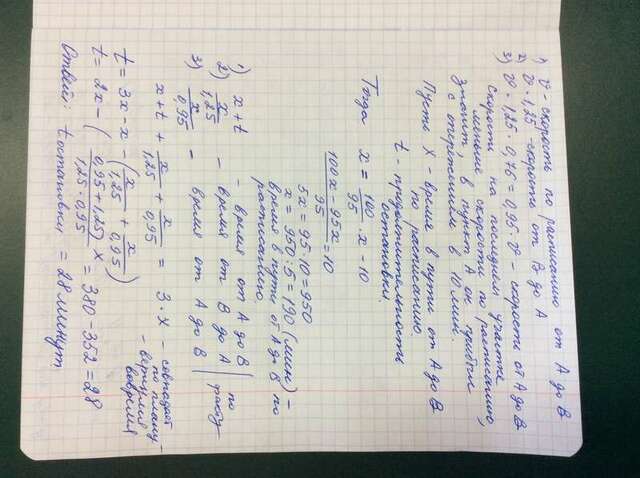 1) v - скорость по расписанию от А до В
2) v · 1,25 - скорость от В до А
3) v · 1,25 · 0,76 = 0,95 · v - скорость от А до В
Скорость на последнем участке
меньше скорости по расписанию,
значит, в пункт А он прибыл
с опережением в 10 мин.
Пусть x - время в пути от А до В
по расписанию.
t - продолжительность
остановки.
Тогда x = 100/95 · x - 10
(100x - 95x)/95 = 10
5x = 95 · 10 = 950
x = 950 : 5 = 190 (мин) -
время в пути от А до В по
расписанию.
1) x + t - время от А до В | по
2) x/1,25 - время от В до А | факту
3) x/0,95 - время от А до В
x + t + x/1,25 + x/0,95 = 3 · x - совпадает
по плану -
- вернулся
вовремя
t = 3x - x - (x/1,25 + x/0,95)
t = 2x - ((0,95 + 1,25)/(1,25 · 0,95)) x = 380 - 352 = 28
Ответ: t остановки = 28 минут